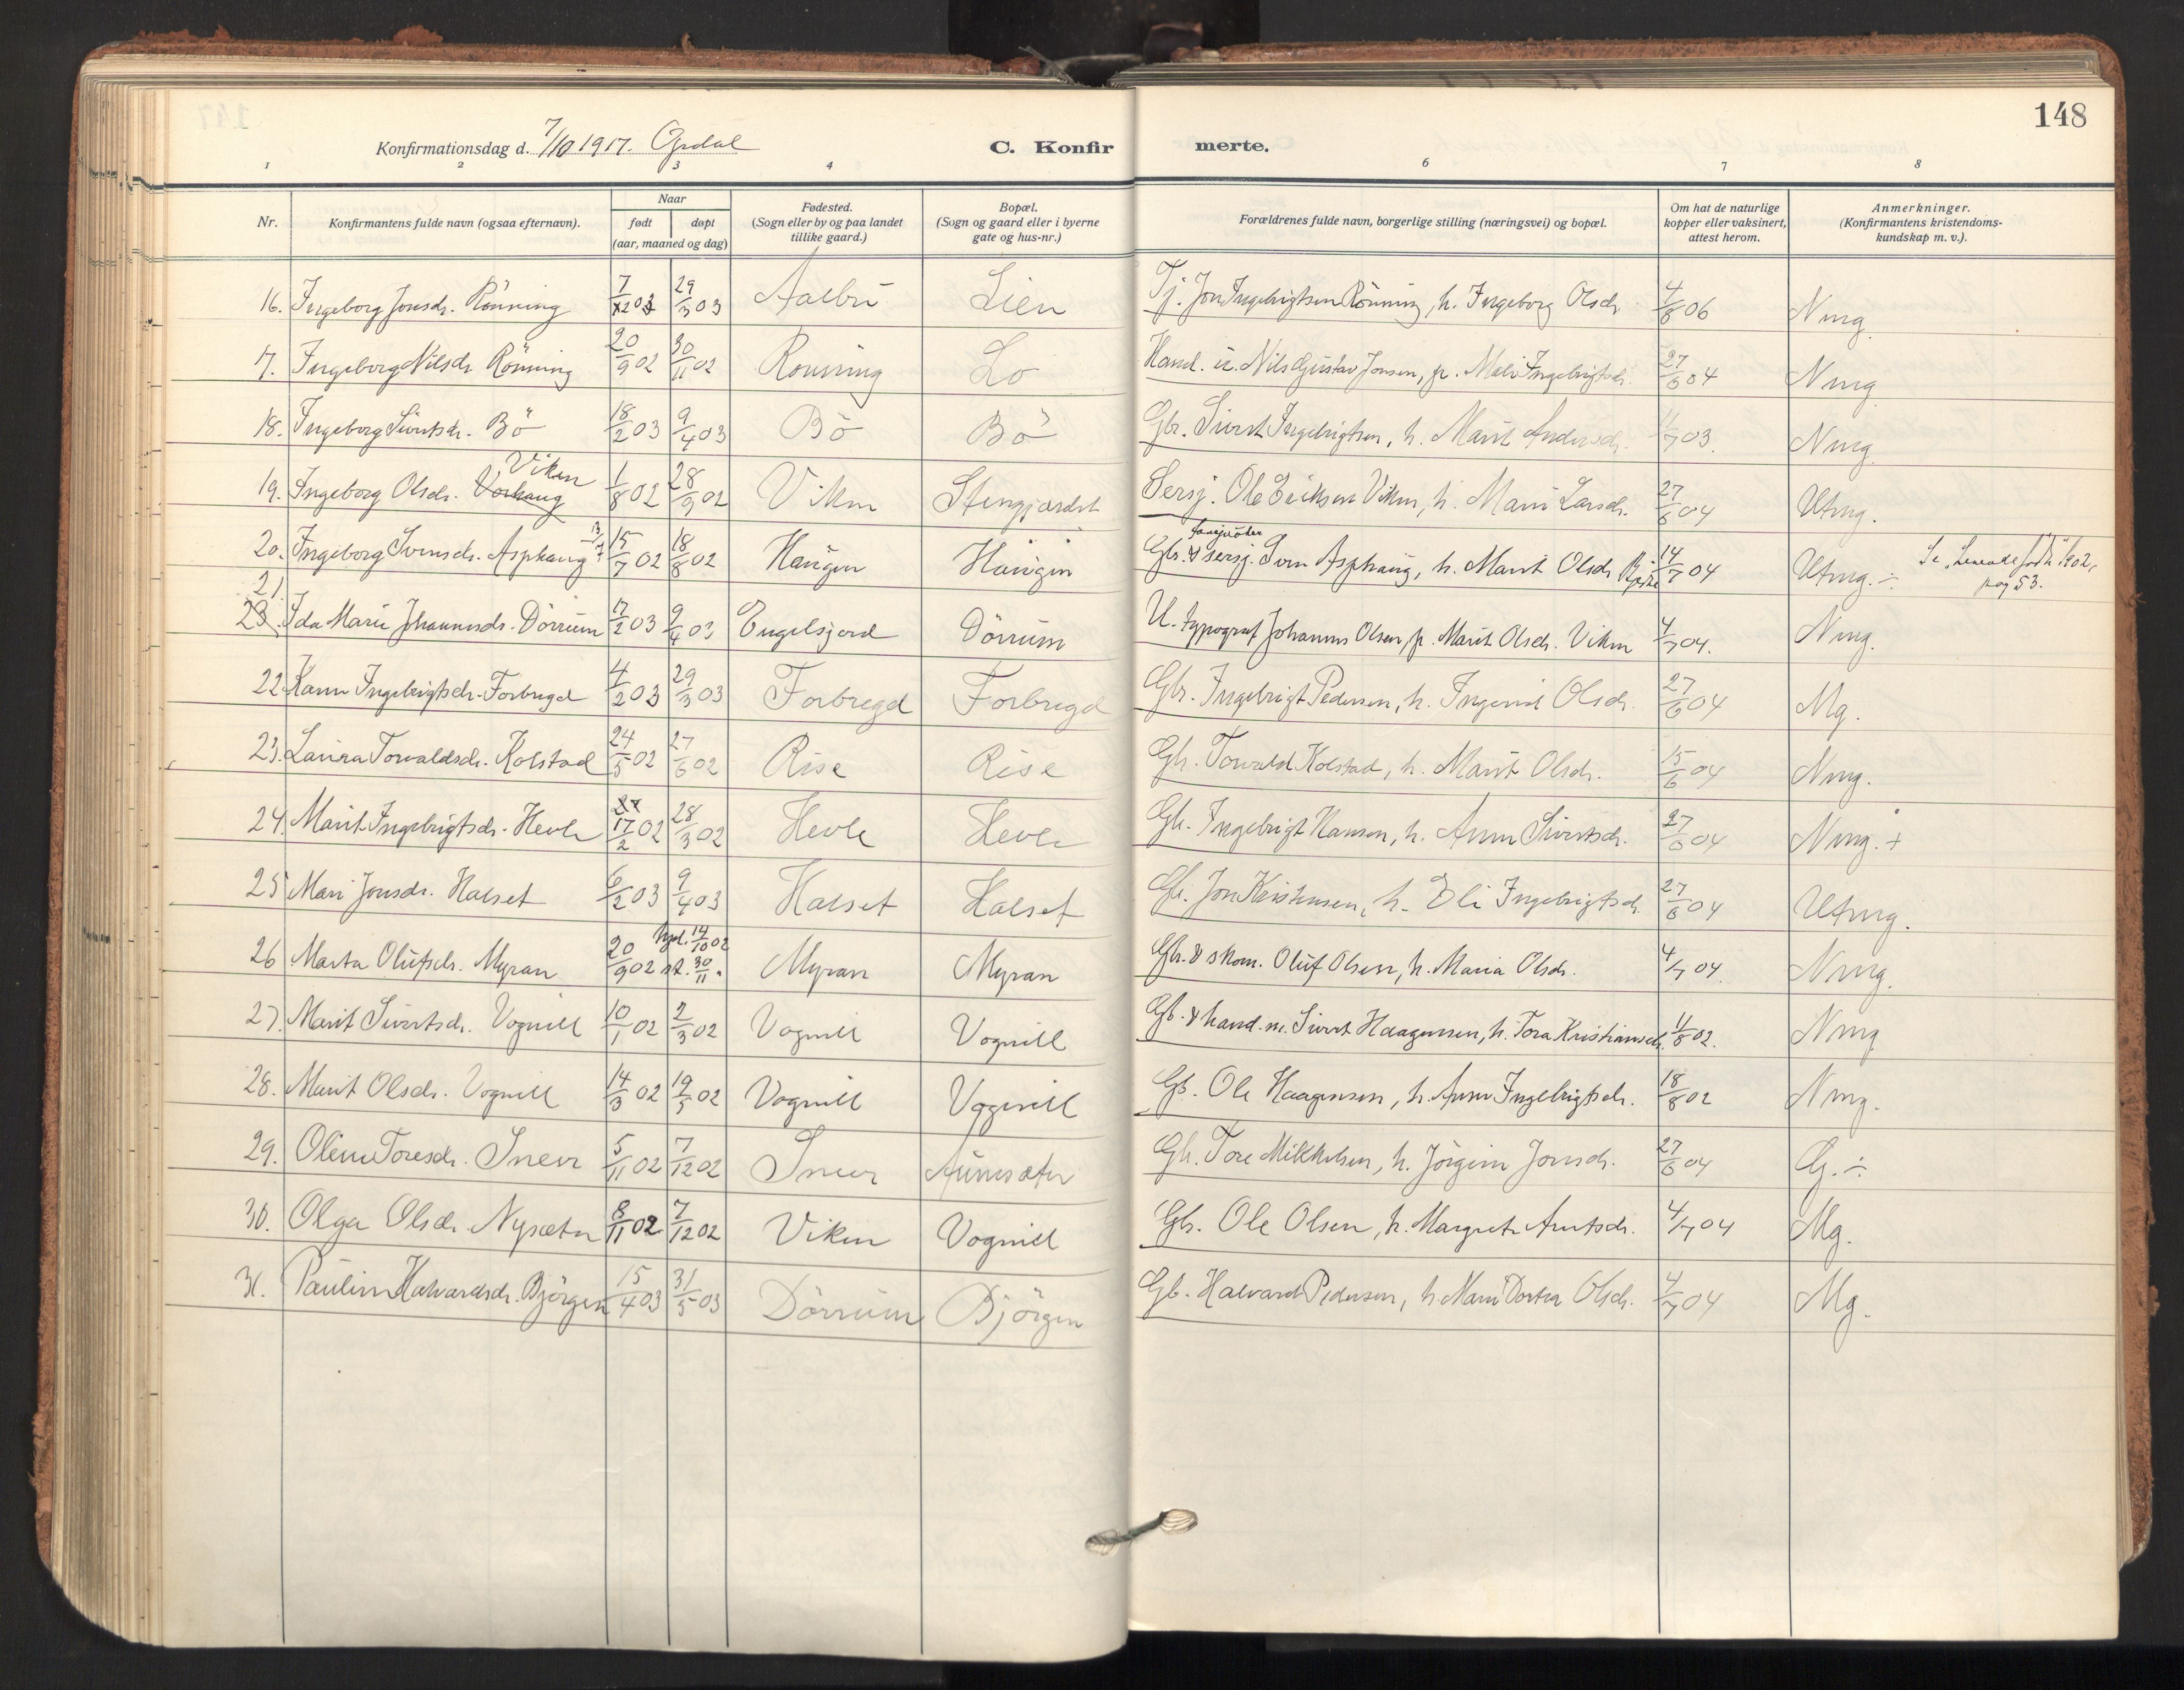 148
Konfirmationsdag d. 7/10 1917. Opdal
C. Konfir merte.
1 2 3 4 6 7 8
Nr. Konfirmantens fulde navn (ogsaa efternavn). Naar født døpt (aar, maaned og dag) Fødested. (Sogn eller by og paa landet tillike gaard.) Bopæl. (Sogn og gaard eller i byerne gate og hus-nr.) Forældrenes fulde navn, borgerlige stilling (næringsvei) og bopæl. Om hat de naturlige kopper eller vaksinert, attest herom. Anmerkninger. (Konfirmantens kristendoms- kundskap m. v.).
16. Ingeborg Jonsdr. Rönning 7/2 03 29/3 03 Aalbu Lien Tj. Jon Ingebrigtsen Rönning, h. Ingeborg Olsdr. 4/8 06 Nmg.
17. Ingeborg Nilsdr. Rönning 20/9 02 30/11 02 Rönning Lo Hand. u. Nils Gustav Jonsen, p. Mali Ingebrigtsdr. 27/6 04 Nmg
18. Ingeborg Sivertsdr. Bö 18/2 03 9/4 03 Bö Bö Gbr. Sivert Ingebrigtsen, h. Marit Andersdr. 11/7 03. Nmg.
Viken
19. Ingeborg Olsdr. Vorhaug 1/8 02 28/9 02 Viken Stengjardet Sersj. Ole Eriksen Viken, h. Mari Larsdr. 27/6 04 Utmg.
20. Ingeborg Svensdr. Asphaug 15/7 02 18/8 02 Haugen Haugen Gbr. & sersj. Sven Asphaug, h. Marit Olsdr. 14/7 04 Utmg. ÷ Se "Levende födte" 1902, pag 53.
21. 23. Ida Marie Johannesdr. Dörrum 17/2 03 9/4 03 Engelsjord Dörrum U. typograf Johannes Olsen, p. Marit Olsdr. Viken 4/7 04. Nmg.
22. Karen Ingebrigtsdr. Forbregd 4/2 03 29/3 03 Forbregd Forbregd Gbr. Ingebrigt Pedersen, h. Ingerid Olsdr. 27/6 04 Mg.
23. Laura Torvaldsdr. Kolstad 24/5 02 27/6 02 Rise Rise Gbr. Torvald Kolstad, h. Marit Olsdr. 15/6 04 Nmg.
24. Marit Ingebrigtsdr. Hevle 17/2 02 28/3 02 Hevle Hevle Gbr. Ingebrigt Hansen, h. Anne Sivertsdr. 27/6 04 Nmg. +
25 Mari Jonsdr. Halset 6/2 03 9/4 03 Halset Halset Gbr. Jon Kristensen, h. Eli Ingebrigtsdr. 27/6 04 Utmg.
26 Marta Olufsdr. Myran 20/9 02 hjd. 14/10 02 st. 30/11 " Myran Myran Gbr. & skom. Oluf Olsen, h. Maria Olsdr. 4/7 04 Nmg.
27. Marit Sivertsdr. Vognill 10/1 02 2/3 02 Vognill Vognill Gb. & hand. m. Sivert Haagensen, h. Tora Kristiansdr. 11/8 02. Nmg
28. Marit Olsdr. Vognill 14/3 02 19/5 02 Vognill Vognill Gb. Ole Haagensen, h. Anne Ingebrigtsdr. 18/8 02 Nmg.
29. Oline Toresdr. Sneve 5/11 02 7/12 02 Sneve Aunesæter Gbr. Tore Mikkelsen, h. Jörgine Jonsdr. 27/6 04 G. ÷
30. Olga Olsdr. Nysæter 8/11 02 7/12 02 Viken Vognill Gbr. Ole Olsen, h. Margrete Arntsdr. 4/7 04 Mg.
31. Pauline Halvardsdr. Björgen 15/4 03 31/5 03 Dörrum Björgen Gb. Halvard Pedersen, h. Mari Dortea Olsdr. 4/7 04 Mg.